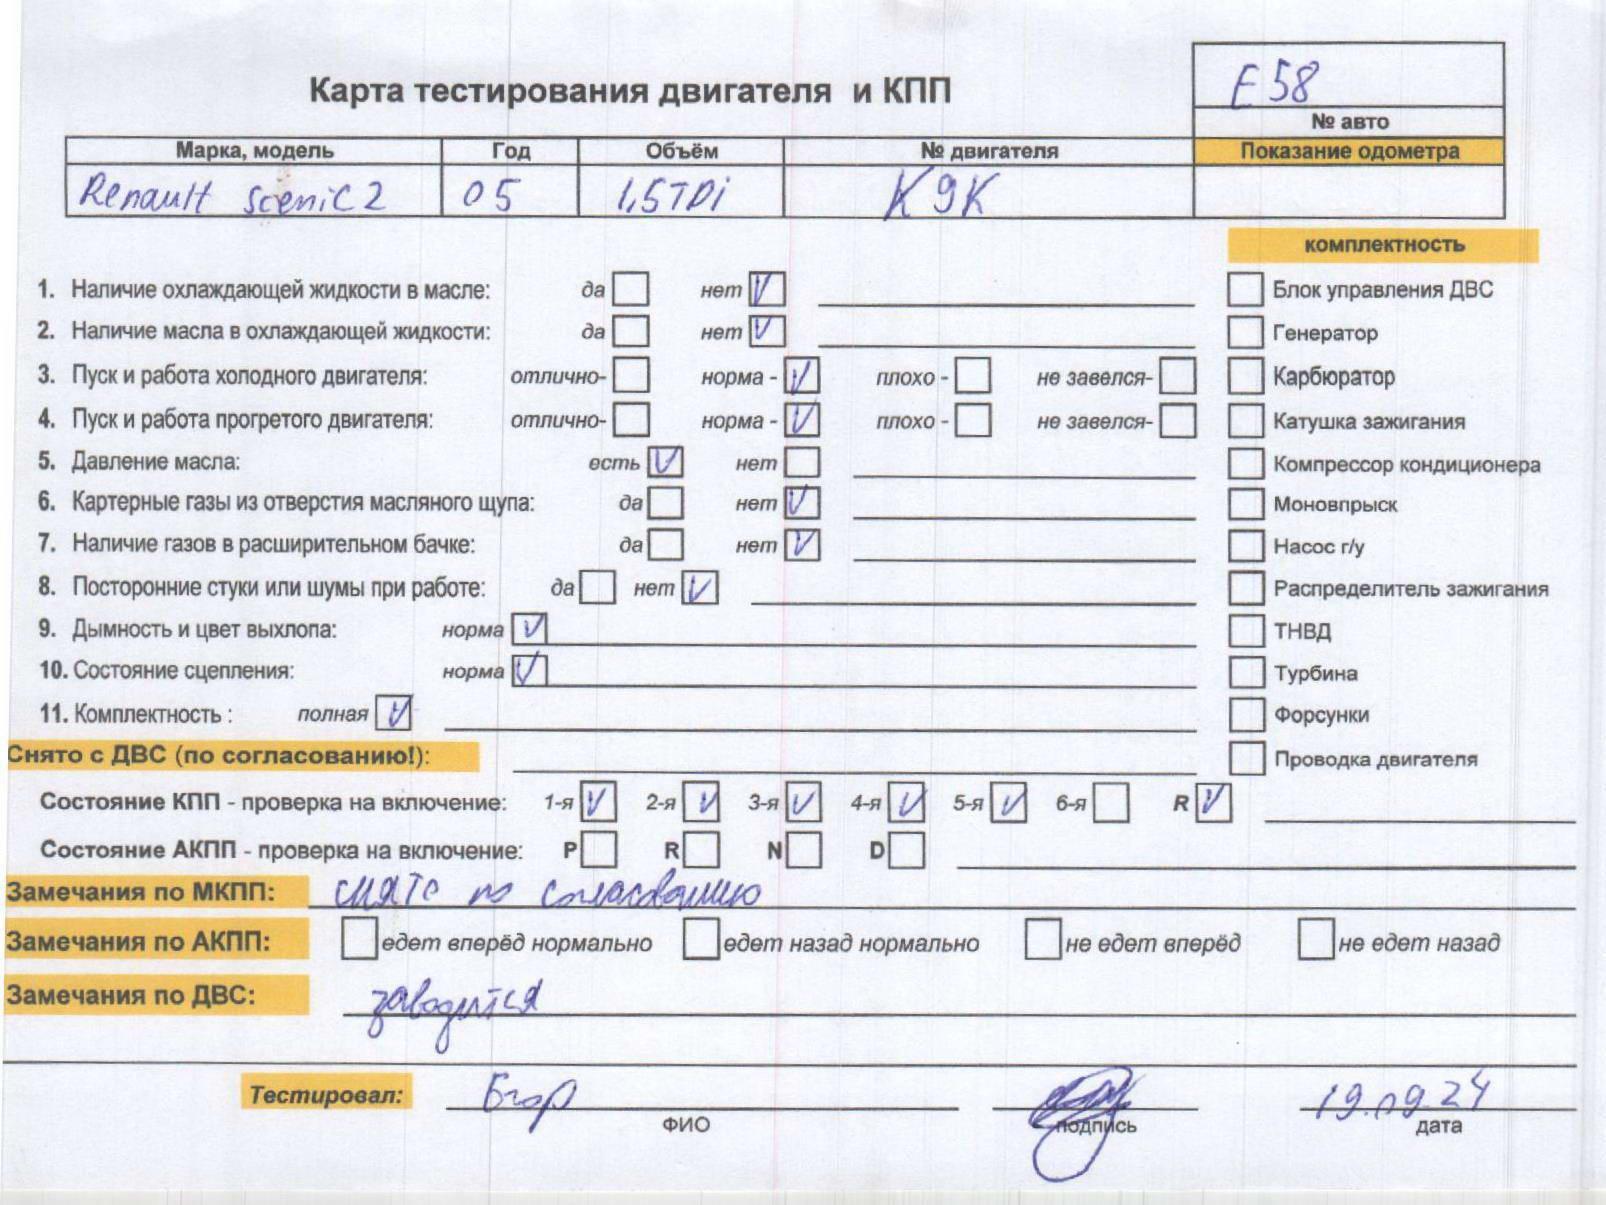 E58
Карта тестирования двигателя и КПП
№ авто
Марка, модель Год Объём № двигателя Показание одометра
Renault Scenic 2 05 1,5TDi K9K
комплектность
1. Наличие охлаждающей жидкости в масле: да нет V Блок управления ДВС
2. Наличие масла в охлаждающей жидкости: да нет V Генератор
3. Пуск и работа холодного двигателя: отлично- норма - V плохо - не завелся- Карбюратор
4. Пуск и работа прогретого двигателя: отлично- норма - V плохо - не завелся- Катушка зажигания
5. Давление масла: есть V нет Компрессор кондиционера
6. Картерные газы из отверстия масляного щупа: да нет V Моновпрыск
7. Наличие газов в расширительном бачке: да нет V Насос г/у
8. Посторонние стуки или шумы при работе: да нет V Распределитель зажигания
9. Дымность и цвет выхлопа: норма V ТНВД
10. Состояние сцепления: норма V Турбина
11. Комплектность : полная V Форсунки
Снято с ДВС (по согласованию!): Проводка двигателя
Состояние КПП - проверка на включение: 1-я V 2-я V 3-я V 4-я V 5-я V 6-я R V
Состояние АКПП - проверка на включение: P R N D
Замечания по МКПП: снято по согласованию
Замечания по АКПП: едет вперёд нормально едет назад нормально не едет вперёд не едет назад
Замечания по ДВС: заводится
Тестировал: Егор 19.09.24
ФИО подпись дата